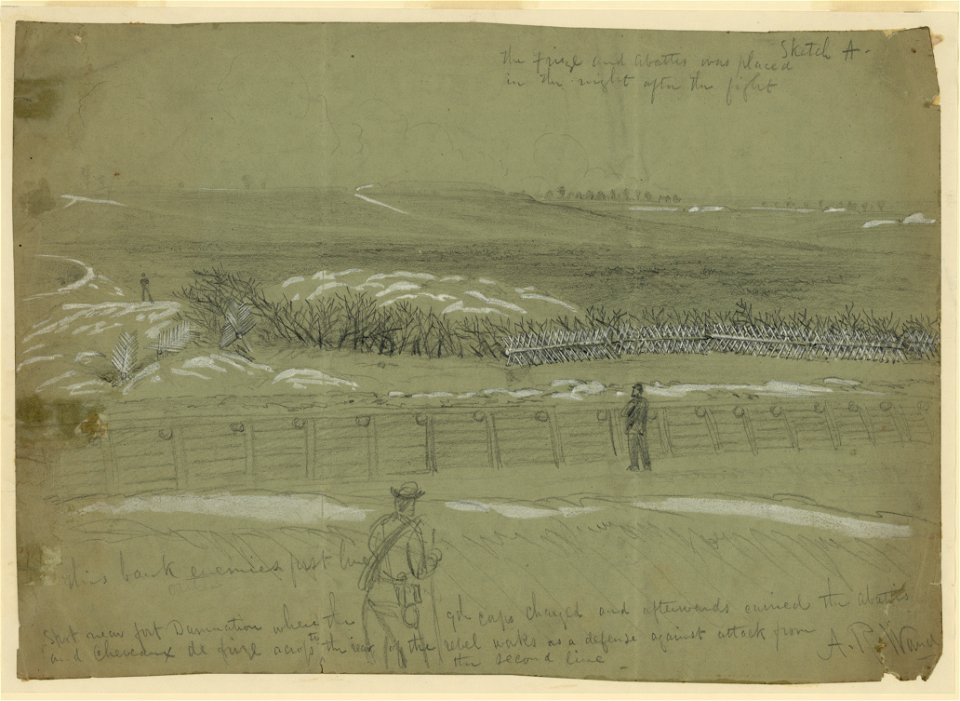 Sketch A.
the frize and abattis was placed
in the night after the fight
this bank enemies first line
Spot near fort Damnation where the 9th corps charged and afterwards carried the abattis
and Cheveaux de frize across to the rear of the rebel works as a defense against attack from
the second line
A. R. Waud